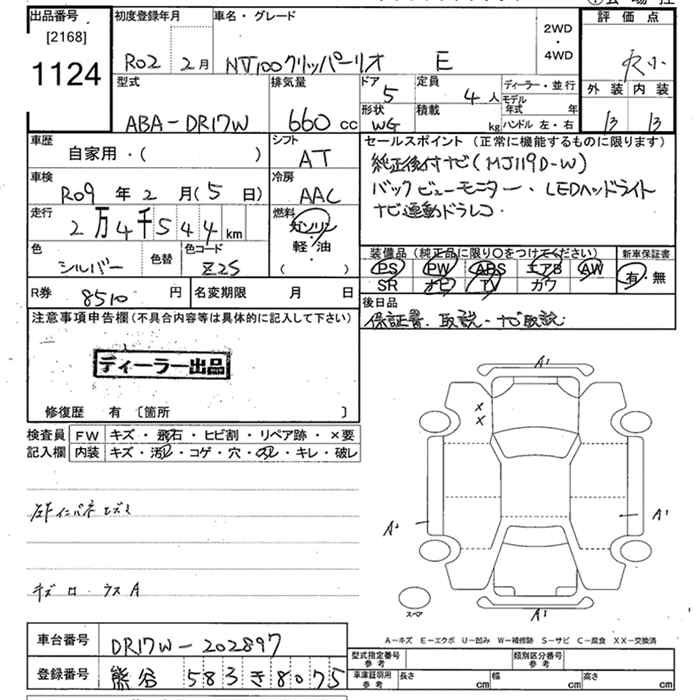 出品番号
[2168]
1124
初度登録年月
R02 2月
車名・グレード
NV100クリッパーリオ E
2WD
・
4WD
評価点
外装 内装
B B
型式
ABA-DR17W
排気量
660 cc
ドア
5
定員
4人
ディーラー・並行
モデル年式 年
ハンドル 左・右
形状
WG
積載
kg
車歴
自家用・( )
シフト
AT
セールスポイント(正常に機能するものに限ります)
純正後付ナビ(MJ119D-W)
バックビューモニター・LEDヘッドライト
ナビ連動ドラレコ
車検
R09年2月(5日)
冷房
AAC
走行
2万4千544km
燃料
ガソリン
軽・油
( )
色
シルバー
色替
色コード
Z2S
装備品(純正品に限り○をつけてください)
PS PW ABS エアB AW
SR ナビ TV カワ
新車保証書
有・無
R券 8510円
名変期限 月 日
後日品
保証書・取説・ナビ取説
注意事項申告欄(不具合内容等は具体的に記入して下さい)
ディーラー出品
修復歴 有 〔箇所 〕
検査員
記入欄
FW キズ・飛石・ヒビ割・リペア跡・×要
内装 キズ・汚レ・コゲ・穴・スレ・キレ・破レ
A1
x
x
A2
A1
スマ
A1
A-キズ E-エクボ U-凹み W-補修跡 S-サビ C-腐食 XX-交換済
車台番号 DR17W-202897
登録番号 熊谷 583き8075
型式指定番号
参考
類別区分番号
参考
車庫証明用
参考
長さ cm 幅 cm 高さ cm